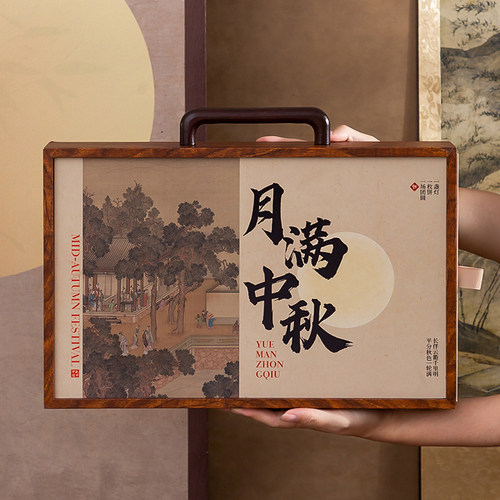 MID-AUTUMN FESTIVAL
月满中秋
YUE
MAN
ZHON
GQIU
一盏灯
一枚饼
一场团圆
长伴云衢千里明
平分秋色一轮满